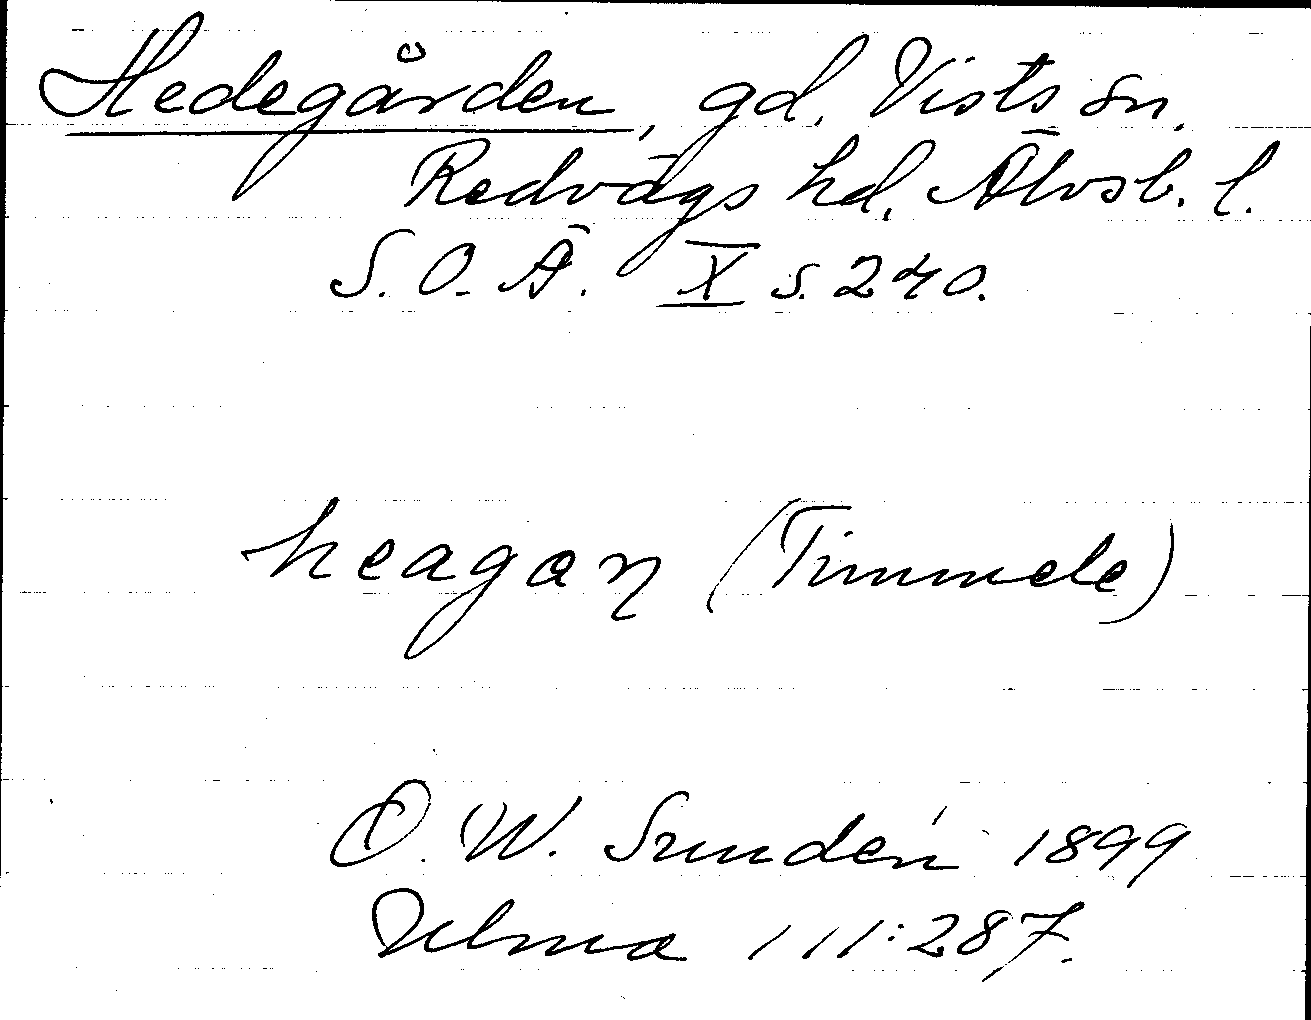 Hedegården, gd, Vists sn.
Redvägs hd, Älvsb. l.
S. O. Ä. X s. 240.
heagaη (Timmele)
O. W. Sundén 1899
Ulma 111:287.